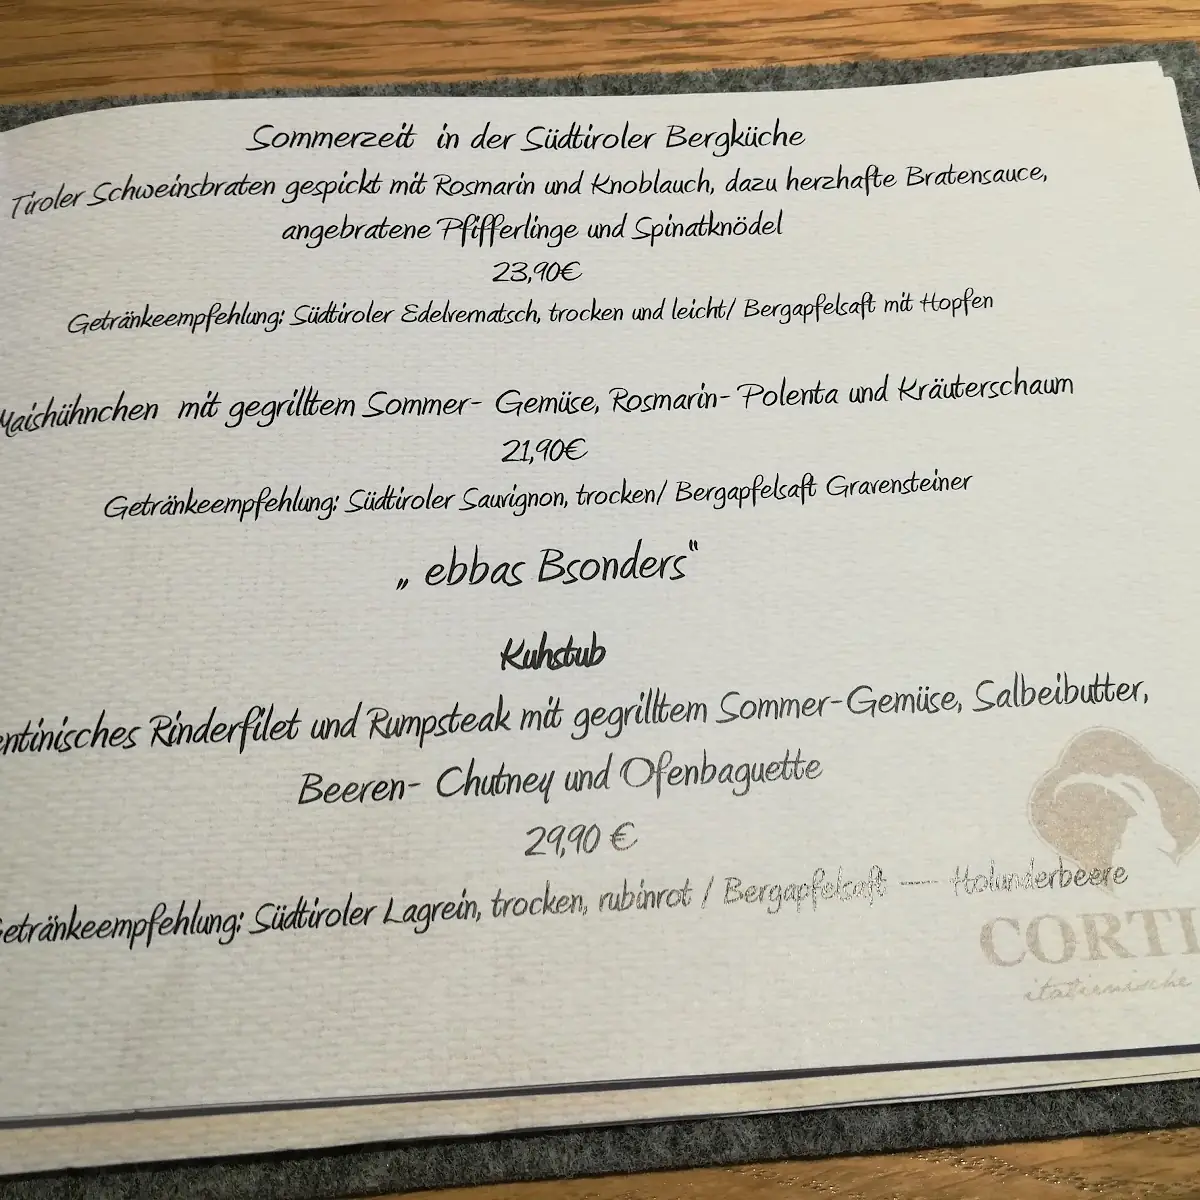 Sommerzeit in der Südtiroler Bergküche
Tiroler Schweinsbraten gespickt mit Rosmarin und Knoblauch, dazu herzhafte Bratensauce,
angebratene Pfifferlinge und Spinatknödel
23,90€
Getränkeempfehlung: Südtiroler Edelvernatsch, trocken und leicht/ Bergapfelsaft mit Hopfen
Maishühnchen mit gegrilltem Sommer- Gemüse, Rosmarin- Polenta und Kräuterschaum
21,90€
Getränkeempfehlung: Südtiroler Sauvignon, trocken/ Bergapfelsaft Gravensteiner
„ ebbas Bsonders“
Kuhstub
entinisches Rinderfilet und Rumpsteak mit gegrilltem Sommer-Gemüse, Salbeibutter,
Beeren- Chutney und Ofenbaguette
29,90 €
Getränkeempfehlung: Südtiroler Lagrein, trocken, rubinrot / Bergapfelsaft — Holunderbeere
CORTI
italienische